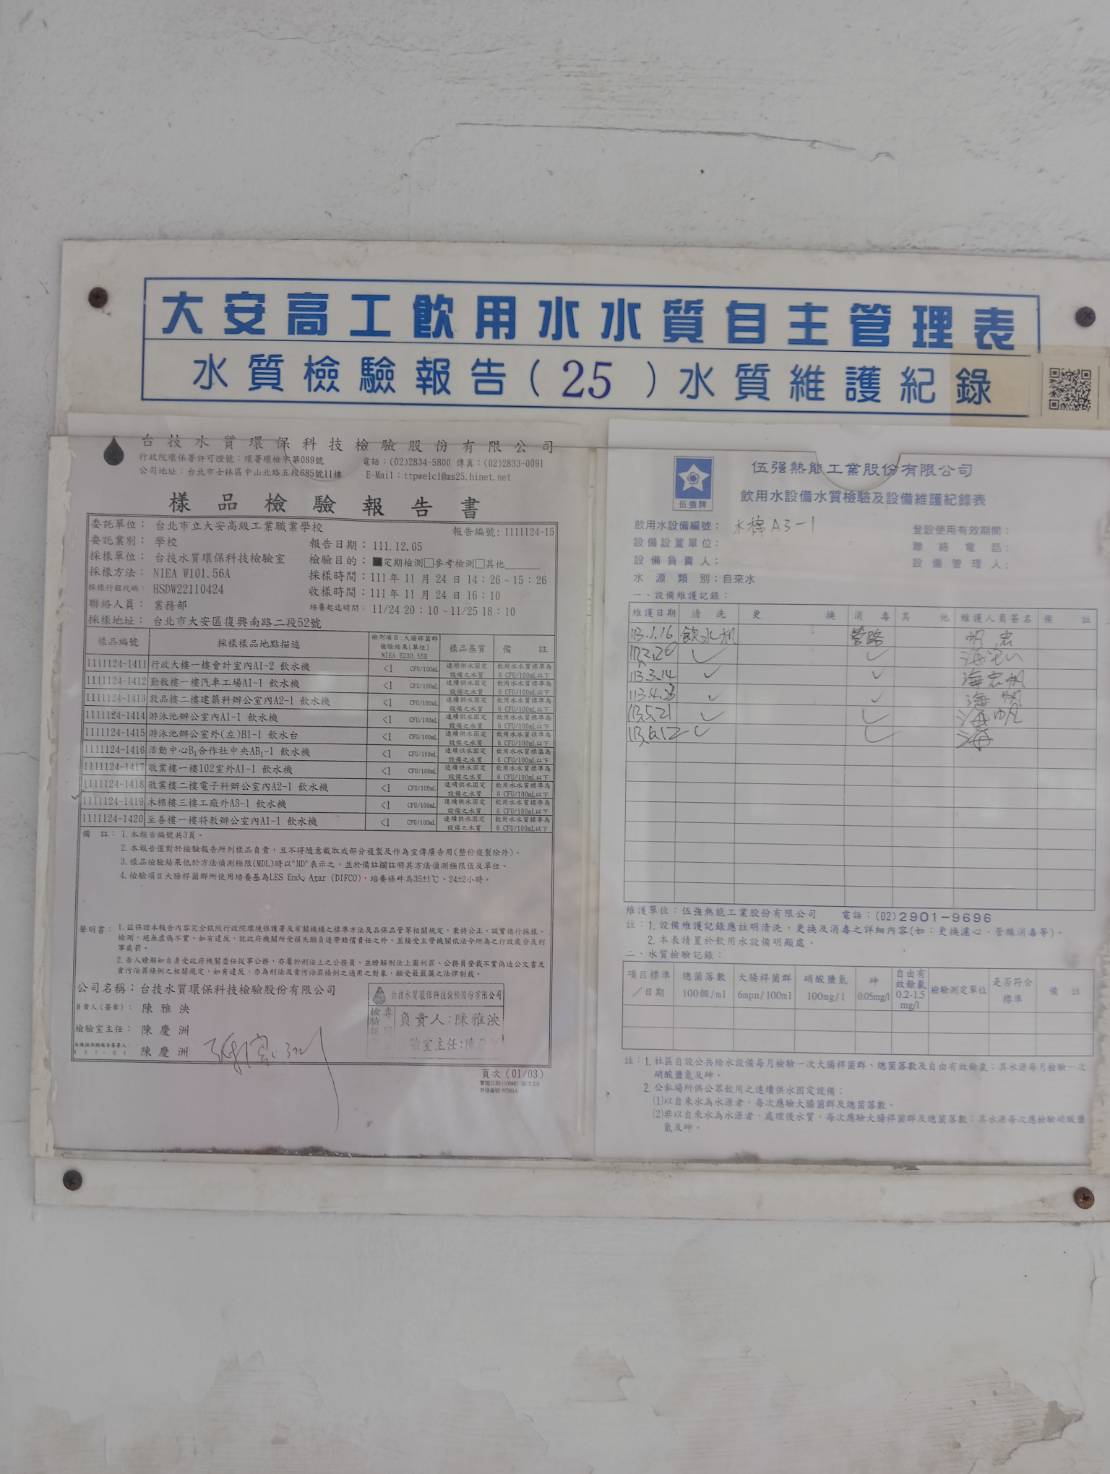 大安高工飲用水水質自主管理表
水質檢驗報告(25)水質維護紀錄
台技水質環保科技檢驗股份有限公司
行政院環保署許可證號:環署環檢字第089號 電話:(02)2834-5800 傳真:(02)2833-0091
公司地址:台北市士林區中山北路五段685號11樓 E-Mail:
樣品檢驗報告書
委託單位: 台北市立大安高級工業職業學校 報告編號:1111124-15
委託業別: 學校 報告日期:111.12.05
採樣單位: 台技水質環保科技檢驗室 檢驗目的:■定期檢測□參考檢測□其他
採樣方法: NIEA W101.56A 採樣時間:111年11月24日14:26-15:26
採樣行程代碼: HSDW22110424 收樣時間:111年11月24日16:10
聯絡人員: 業務部 培養起迄時間:11/24 20:10-11/25 18:10
採樣地址: 台北市大安區復興南路二段52號
樣品編號 採樣樣品地點描述 檢測項目:大腸桿菌群 檢驗結果(單位) 樣品基質 備 註
1111124-1411 行政大樓一樓會計室內A1-2 飲水機 <1 CFU/100mL 連續供水固定設備之水質 飲用水水質標準為6 CFU/100mL以下
1111124-1412 勤毅樓一樓汽車工場A1-1 飲水機 <1 CFU/100mL 連續供水固定設備之水質 飲用水水質標準為6 CFU/100mL以下
1111124-1413 敦品樓二樓建築科辦公室內A2-1 飲水機 <1 CFU/100mL 連續供水固定設備之水質 飲用水水質標準為6 CFU/100mL以下
1111124-1414 游泳池辦公室內A1-1 飲水機 <1 CFU/100mL 連續供水固定設備之水質 飲用水水質標準為6 CFU/100mL以下
1111124-1415 游泳池辦公室外(左)B1-1 飲水台 <1 CFU/100mL 連續供水固定設備之水質 飲用水水質標準為6 CFU/100mL以下
1111124-1416 活動中心B1合作社中央AB1-1 飲水機 <1 CFU/100mL 連續供水固定設備之水質 飲用水水質標準為6 CFU/100mL以下
1111124-1417 敬業樓一樓102室外A1-1 飲水機 <1 CFU/100mL 連續供水固定設備之水質 飲用水水質標準為6 CFU/100mL以下
1111124-1418 敬業樓二樓電子科辦公室內A2-1 飲水機 <1 CFU/100mL 連續供水固定設備之水質 飲用水水質標準為6 CFU/100mL以下
1111124-1419 木棉樓三樓工廠外A3-1 飲水機 <1 CFU/100mL 連續供水固定設備之水質 飲用水水質標準為6 CFU/100mL以下
1111124-1420 至善樓一樓特教辦公室內A1-1 飲水機 <1 CFU/100mL 連續供水固定設備之水質 飲用水水質標準為6 CFU/100mL以下
備 註:1.本報告編號共3頁。
2.本報告僅對於檢驗報告所列樣品負責,且不得隨意截取或部分複製及作為宣傳廣告用(整份複製除外)。
3.樣品檢驗結果低於方法偵測極限(MDL)時以"ND"表示之,並於備註欄註明其方法偵測極限值及單位。
4.檢驗項目大腸桿菌群所使用培養基為LES Endo Agar (DIFCO),培養條件為35±1℃、24±2小時。
公司名稱:台技水質環保科技檢驗股份有限公司
負責人(簽章): 陳雅泱
檢驗室主任: 陳慶洲
陳慶洲
台技水質環保科技檢驗股份有限公司
負責人:陳雅泱
驗室主任:陳
頁次(01/03)
伍強牌
伍強熱能工業股份有限公司
飲用水設備水質檢驗及設備維護紀錄表
飲用水設備編號: 木棉A3-1 登設使用有效期間:
設備設置單位: 聯絡電話:
設備負責人: 設備管理人:
水源類別:自來水
一、設備維護記錄:
維護日期 清洗 更換 消毒 其他 維護人員簽名 備註
113.1.16 飲水機 管路
113.2.26 ✓ ✓
113.3.14 ✓ ✓
113.4.23 ✓ ✓
113.5.21 ✓ ✓
113.6.12 ✓ ✓
維護單位:伍強熱能工業股份有限公司 電話:(02)2901-9696
註:1.設備維護記錄應註明清洗、更換及消毒之詳細內容(如:更換濾心、管線消毒等)。
2.本表請置於飲用水設備明顯處。
二、水質檢驗記錄:
項目標準/日期 總菌落數100個/ml 大腸桿菌群6mpn/100ml 硝酸鹽氮100mg/l 砷0.05mg/l 自由有效餘氯0.2-1.5mg/l 檢驗測定單位 是否符合標準 備註
註:1.社區自設公共給水設備每月檢驗一次大腸桿菌群、總菌落數及自由有效餘氯;其水源每月檢驗一次
硝酸鹽氮及砷。
2.公私場所供公眾飲用之連續供水固定設備:
(1)以自來水為水源者,每次應驗大腸菌群及總菌落數。
(2)非以自來水為水源者,處理後水質,每次應驗大腸桿菌群及總菌落數;其水源每次應檢驗硝酸鹽
氮及砷。